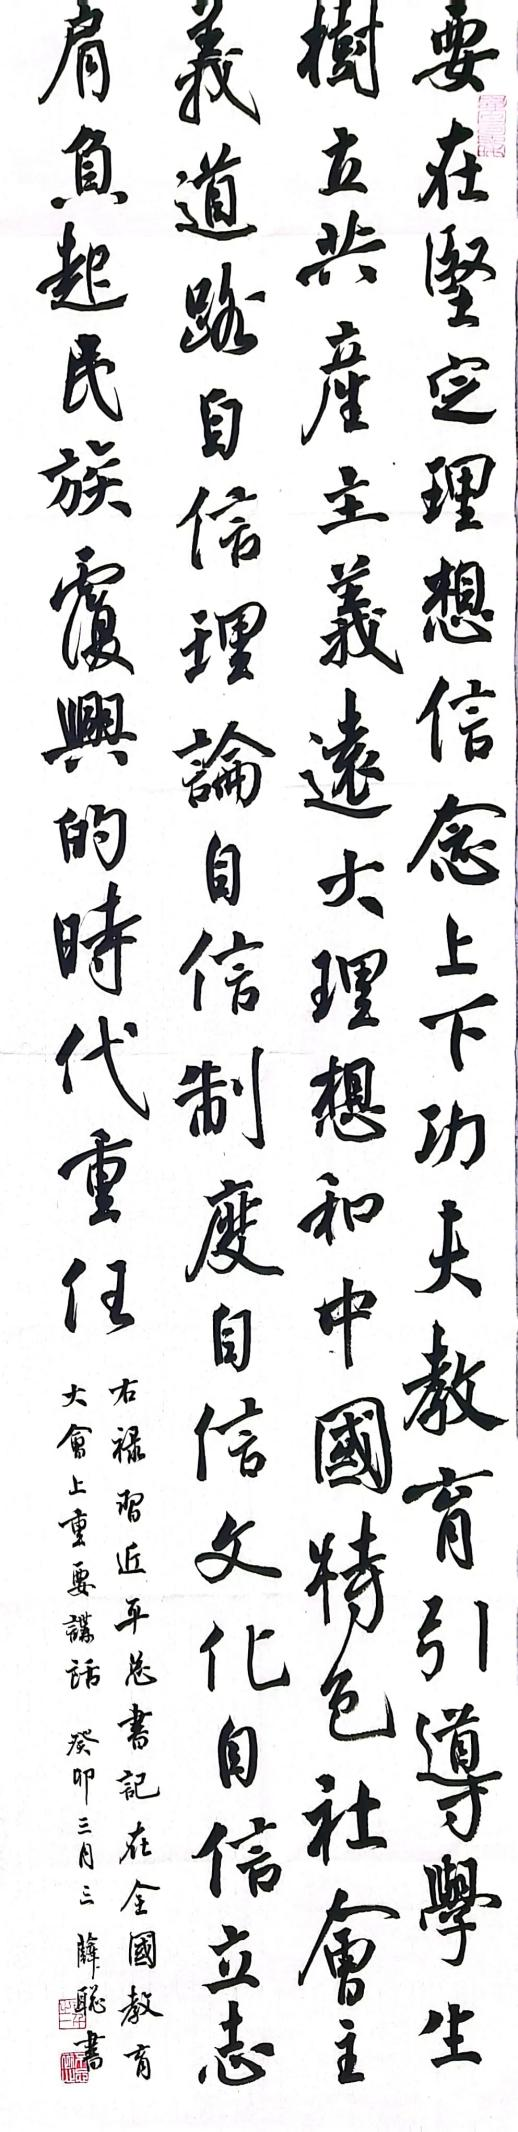 要在堅定理想信念上下功夫教育引導學生
樹立共產主義遠大理想和中國特色社會主
義道路自信理論自信制度自信文化自信立志
肩負起民族復興的時代重任
右禄習近平總書記在全國教育
大會上重要講話 癸卯三月三 薛聰書